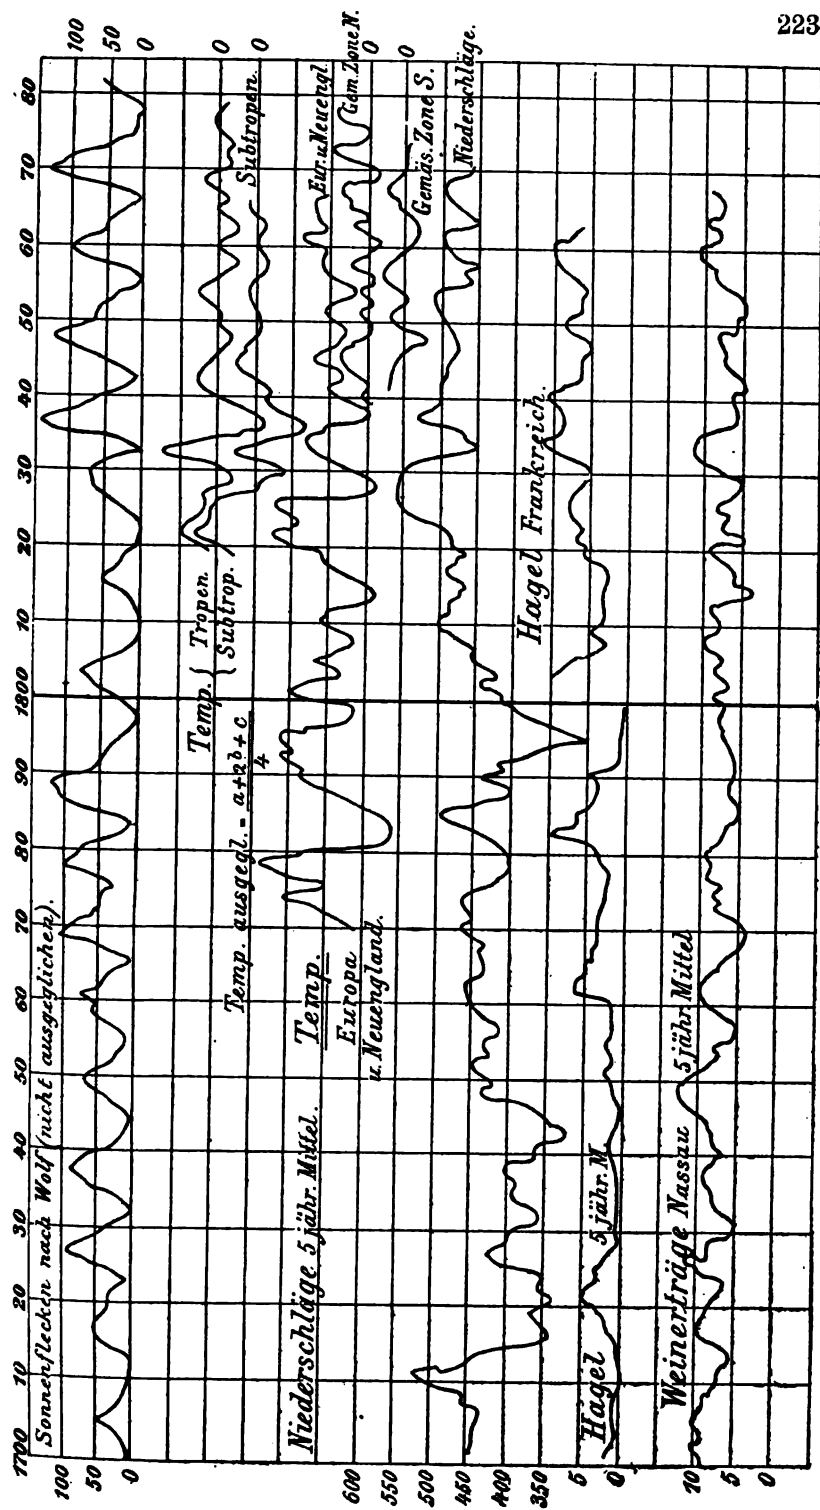 223
1700 10 20 30 40 50 60 70 80 90 1800 10 20 30 40 50 60 70 80
Sonnenflecken nach Wolf (nicht ausgeglichen).
100
50
0
100
50
0
Temp. { Tropen.
Subtrop.
0
0
Subtropen.
Temp. ausgegl. = a+2b+c
4
Temp.
Europa
u. Neuengland.
Eur. u. Neuengl.
Gem. Zone N.
0
0
Gemäs. Zone S.
Niederschläge 5 jähr. Mittel.
Niederschläge.
600
550
500
450
400
350
Hagel 5 jähr. M.
Hagel Frankreich.
5
0
Weinerträge Nassau 5 jähr. Mittel
10
5
0